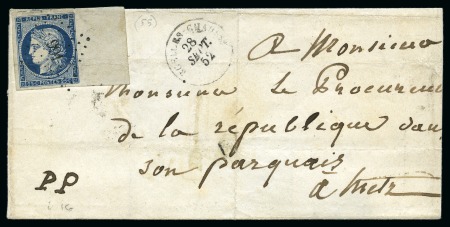 REPUB. FRANC.
(55)
28
SEPT.
52
a Monsieur
Monsieur le Procureur
de la république dans
son parquais
à Metz
PP